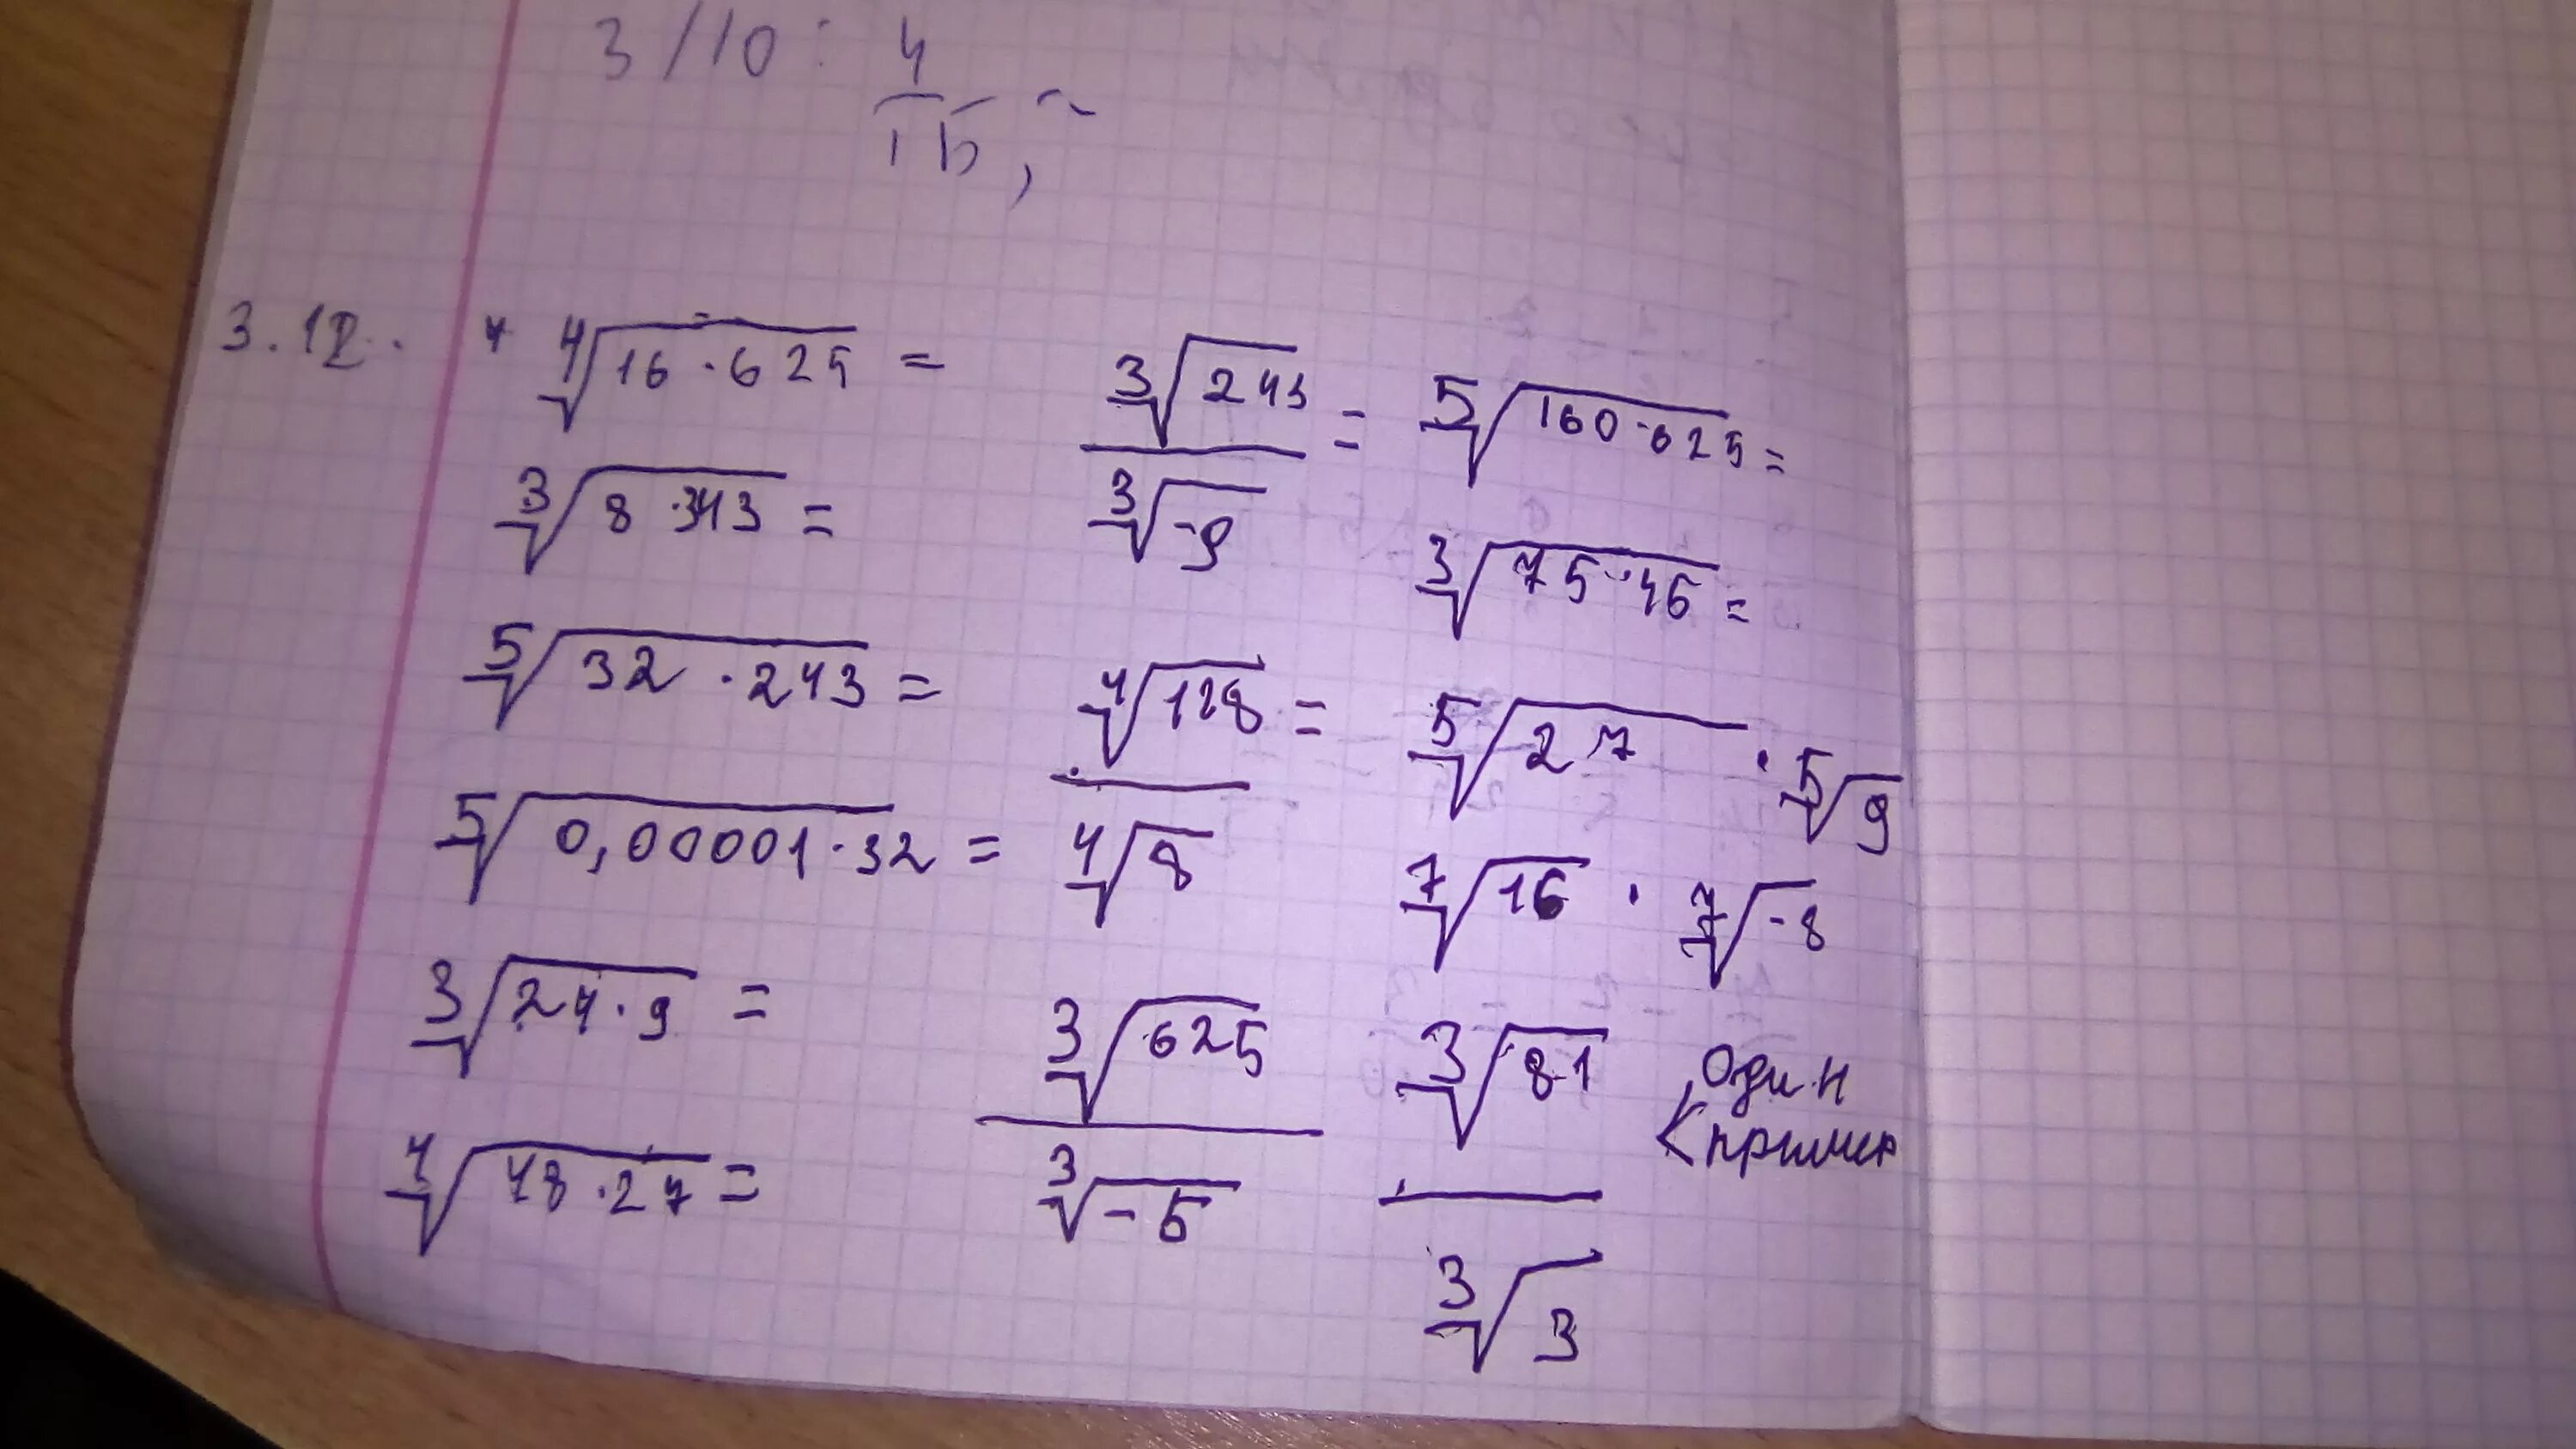 3/10 : 4/15,
3.12. ⁴√16·625 =
³√8·343 =
⁵√32·243 =
⁵√0,00001·32 =
³√24·9 =
⁴√48·27 =
³√243 / ³√-9 =
⁴√128 / ⁴√8 =
³√625 / ³√-5
⁵√160·625 =
³√75·45 =
⁵√27 · ⁵√9
⁷√16 · ⁷√-8
³√81 / ³√3
< один
пример